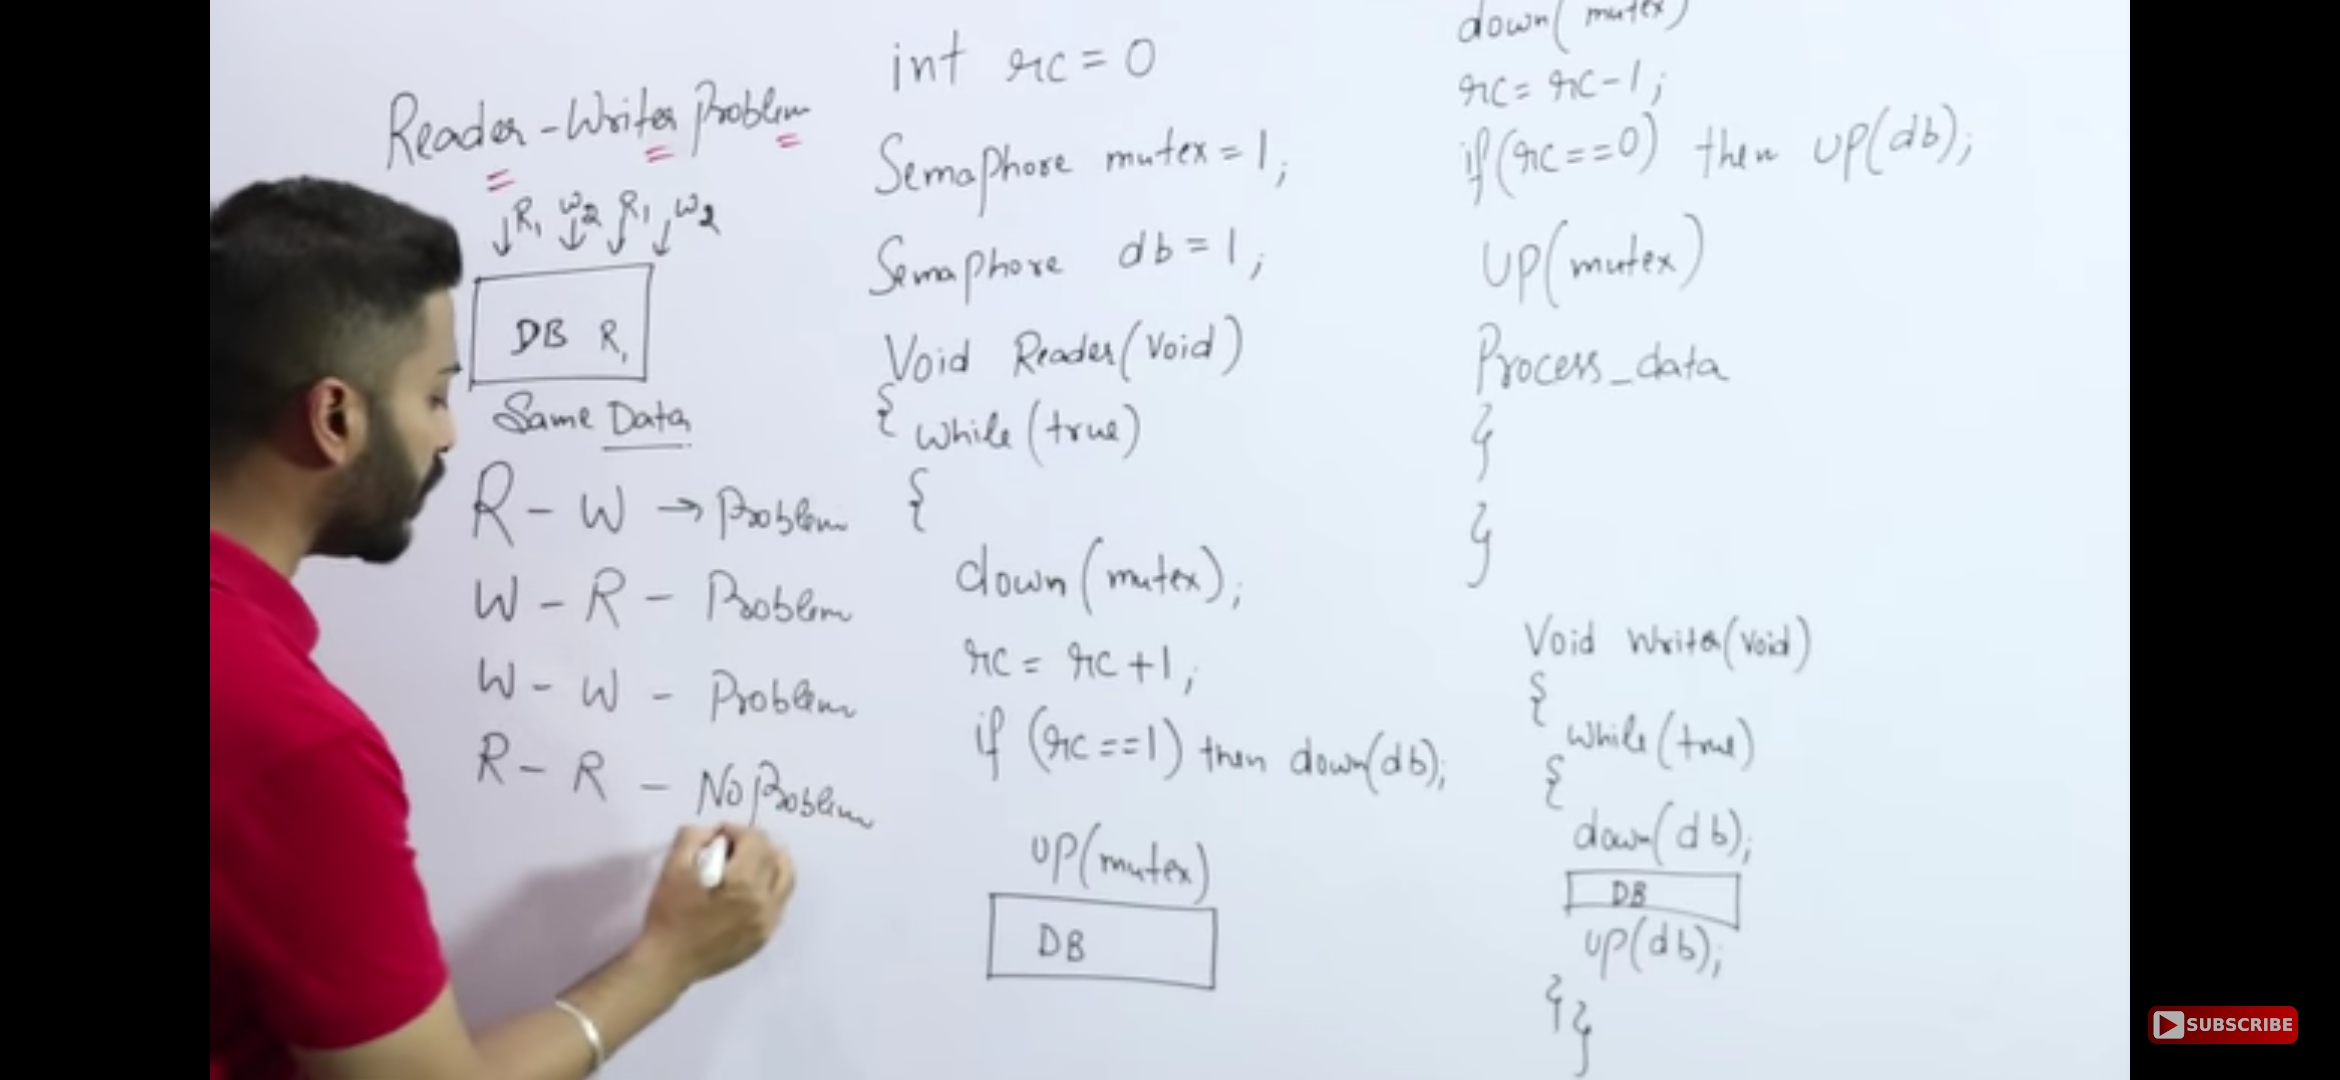 Reader-Writer Problem
R1 W2 R1 W2
DB R1
Same Data
R - W → Problem
W - R - Problem
W - W - Problem
R - R - No Problem
int rc = 0
Semaphore mutex = 1;
Semaphore db = 1;
Void Reader(Void)
{ while (true)
{
down (mutex);
rc = rc + 1;
if (rc==1) then down(db);
UP(mutex)
DB
down( mutex)
rc = rc - 1;
if(rc==0) then UP(db);
UP(mutex)
Process_data
}
}
Void Writer(Void)
{
while (true)
{
down(db);
DB
UP(db);
}}
SUBSCRIBE